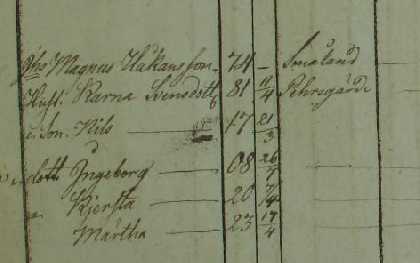 Åbo Magnus Håkansson 74 – Småland
Hust. Karna Bensdott 81 11/4 Pehrsgärde
Son. Nils 17 21/3
dott Ingeborg 08 26/7
Kjersta 20 7/4
Märtha 23 17/4